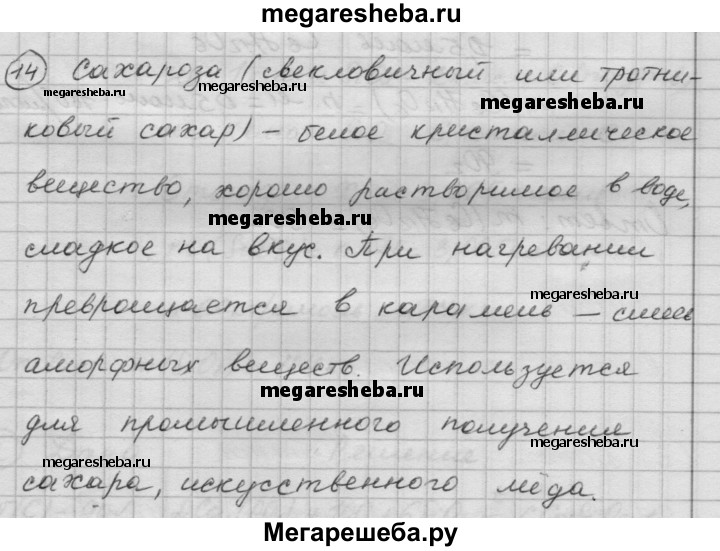 megaresheba.ru
14 Сахароза (свекловичный или тротни-
megaresheba.ru megaresheba.ru
megaresheba.ru
ковый сахар) – белое кристаллическое
вещество, хорошо растворимое в воде,
megaresheba.ru
сладкое на вкус. При нагревании
megaresheba.ru
превращается в карамель – смесь
аморфных веществ. Используется
megaresheba.ru
для промышленного получения
megaresheba.ru megaresheba.ru
сахара, искусственного мёда.
Мегарешеба.ру